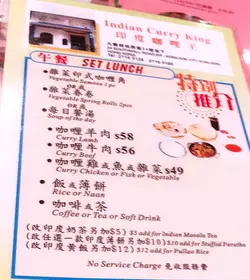 Indian Curry King
印度咖喱王
午餐 SET LUNCH
特別
推介
雜菜印式咖喱角
Vegetable Samosa 1 pc
或 or
雜菜春卷
Vegetable Spring Rolls 2pcs
或 or
每日餐湯
Soup of the day
咖喱羊肉 $58
Curry Lamb
咖喱牛肉 $56
Curry Beef
咖喱雞或魚或雜菜 $49
Curry Chicken or Fish or Vegetable
飯或薄餅
Rice or Naan
咖啡或茶
Coffee or Tea or Soft Drink
(改印度奶茶另加$5) $5 add for Indian Masala Tea
(改任選一款印度薄餅另加$10) $10 add for Stuffed Paratha
(改印度黃飯另加$12) $12 add for Pullao Rice
No Service Charge 免收服務費